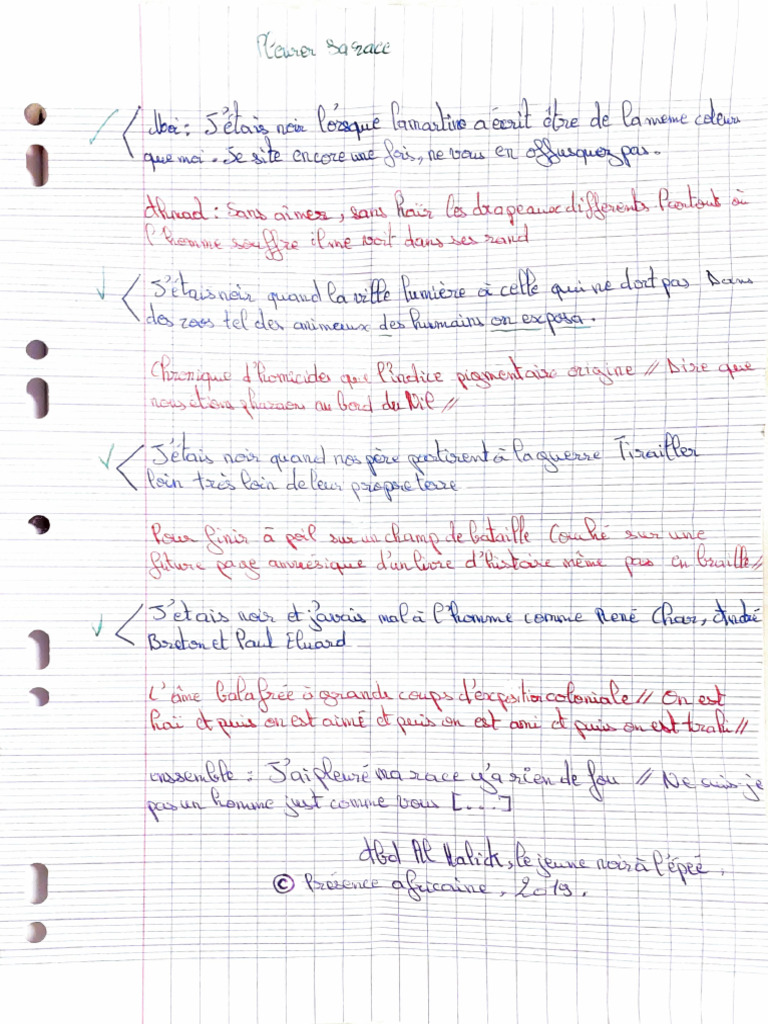 Pleurer sa race
Moi : J'étais noir lorsque lamartine a écrit être de la même coleur
que moi. Je site encore une fois, ne vous en offusquez pas.
Ahmad : Sans aimer, sans haïr les drapeaux différents Partout où
l'homme souffre il me voit dans ses rand
J'étais noir quand la ville lumière à celle qui ne dort pas Dans
des zoos tel des animeux des humains on exposa.
Chronique d'homicides que l'indice pigmentaire origine // Dire que
nous étions pharaon au bord du Nil //
J'étais noir quand nos père partirent à la guerre Tirailler
loin très loin de leur propre terre
Pour finir à poil sur un champ de bataille Couché sur une
future page amnésique d'un livre d'histoire même pas en braille //
J'étais noir et j'avais mal à l'homme comme René Char, André
Breton et Paul Eluard
L'âme balafrée à grande coups d'expositior coloniale // On est
haï et puis on est aimé et puis on est ami et puis on est trahi //
enssemble : J'ai pleuré ma race y'a rien de fou // Ne suis-je
pas un homme just comme vous [....]
Abd Al Malick, le jeune noir à l'épée,
© Présence africaine, 2019.